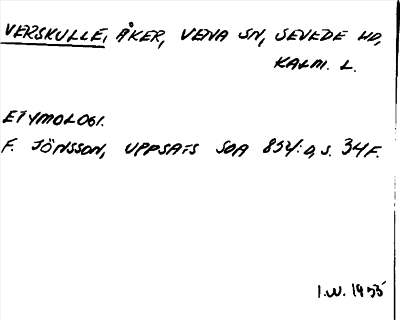 VERSKULLE, ÅKER, VENA SN, SEVEDE HD,
KALM. L.
ETYMOLOGI.
F. JÖNSSON, UPPSATS SOA 854:a, S. 34 F.
I.W. 1955